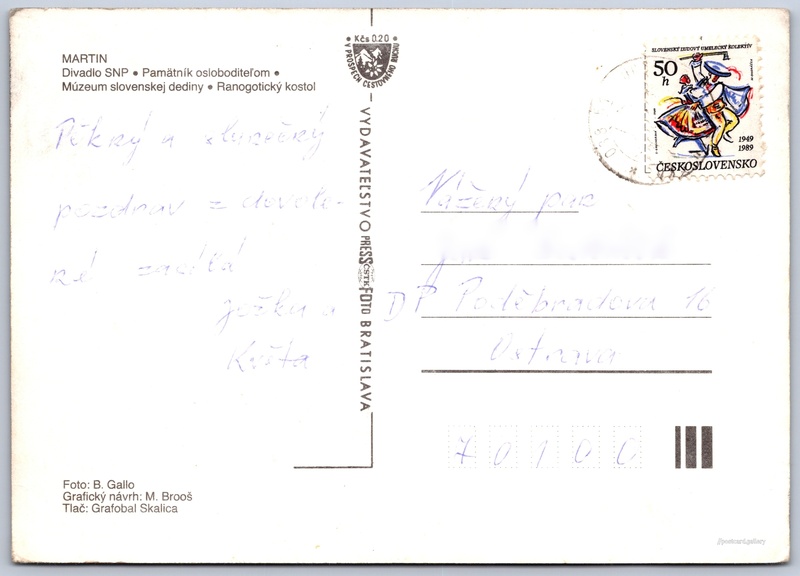 MARTIN
Divadlo SNP • Pamätník osloboditeľom •
Múzeum slovenskej dediny • Ranogotický kostol
Pěkný a slunečný
pozdrav z dovole-
né zasílá
Jožka a
Květa
Foto: B. Gallo
Grafický návrh: M. Brooš
Tlač: Grafobal Skalica
Kčs 0.20
V PROSPECH CESTOVNÉHO RUCHU
VYDAVATEĽSTVO PRESSFOTO BRATISLAVA
ČSTK
SLOVENSKÝ ĽUDOVÝ UMELECKÝ KOLEKTÍV
50
h
1949
1989
ČESKOSLOVENSKO
Vážený pan
DP Poděbradova 16
Ostrava
70100